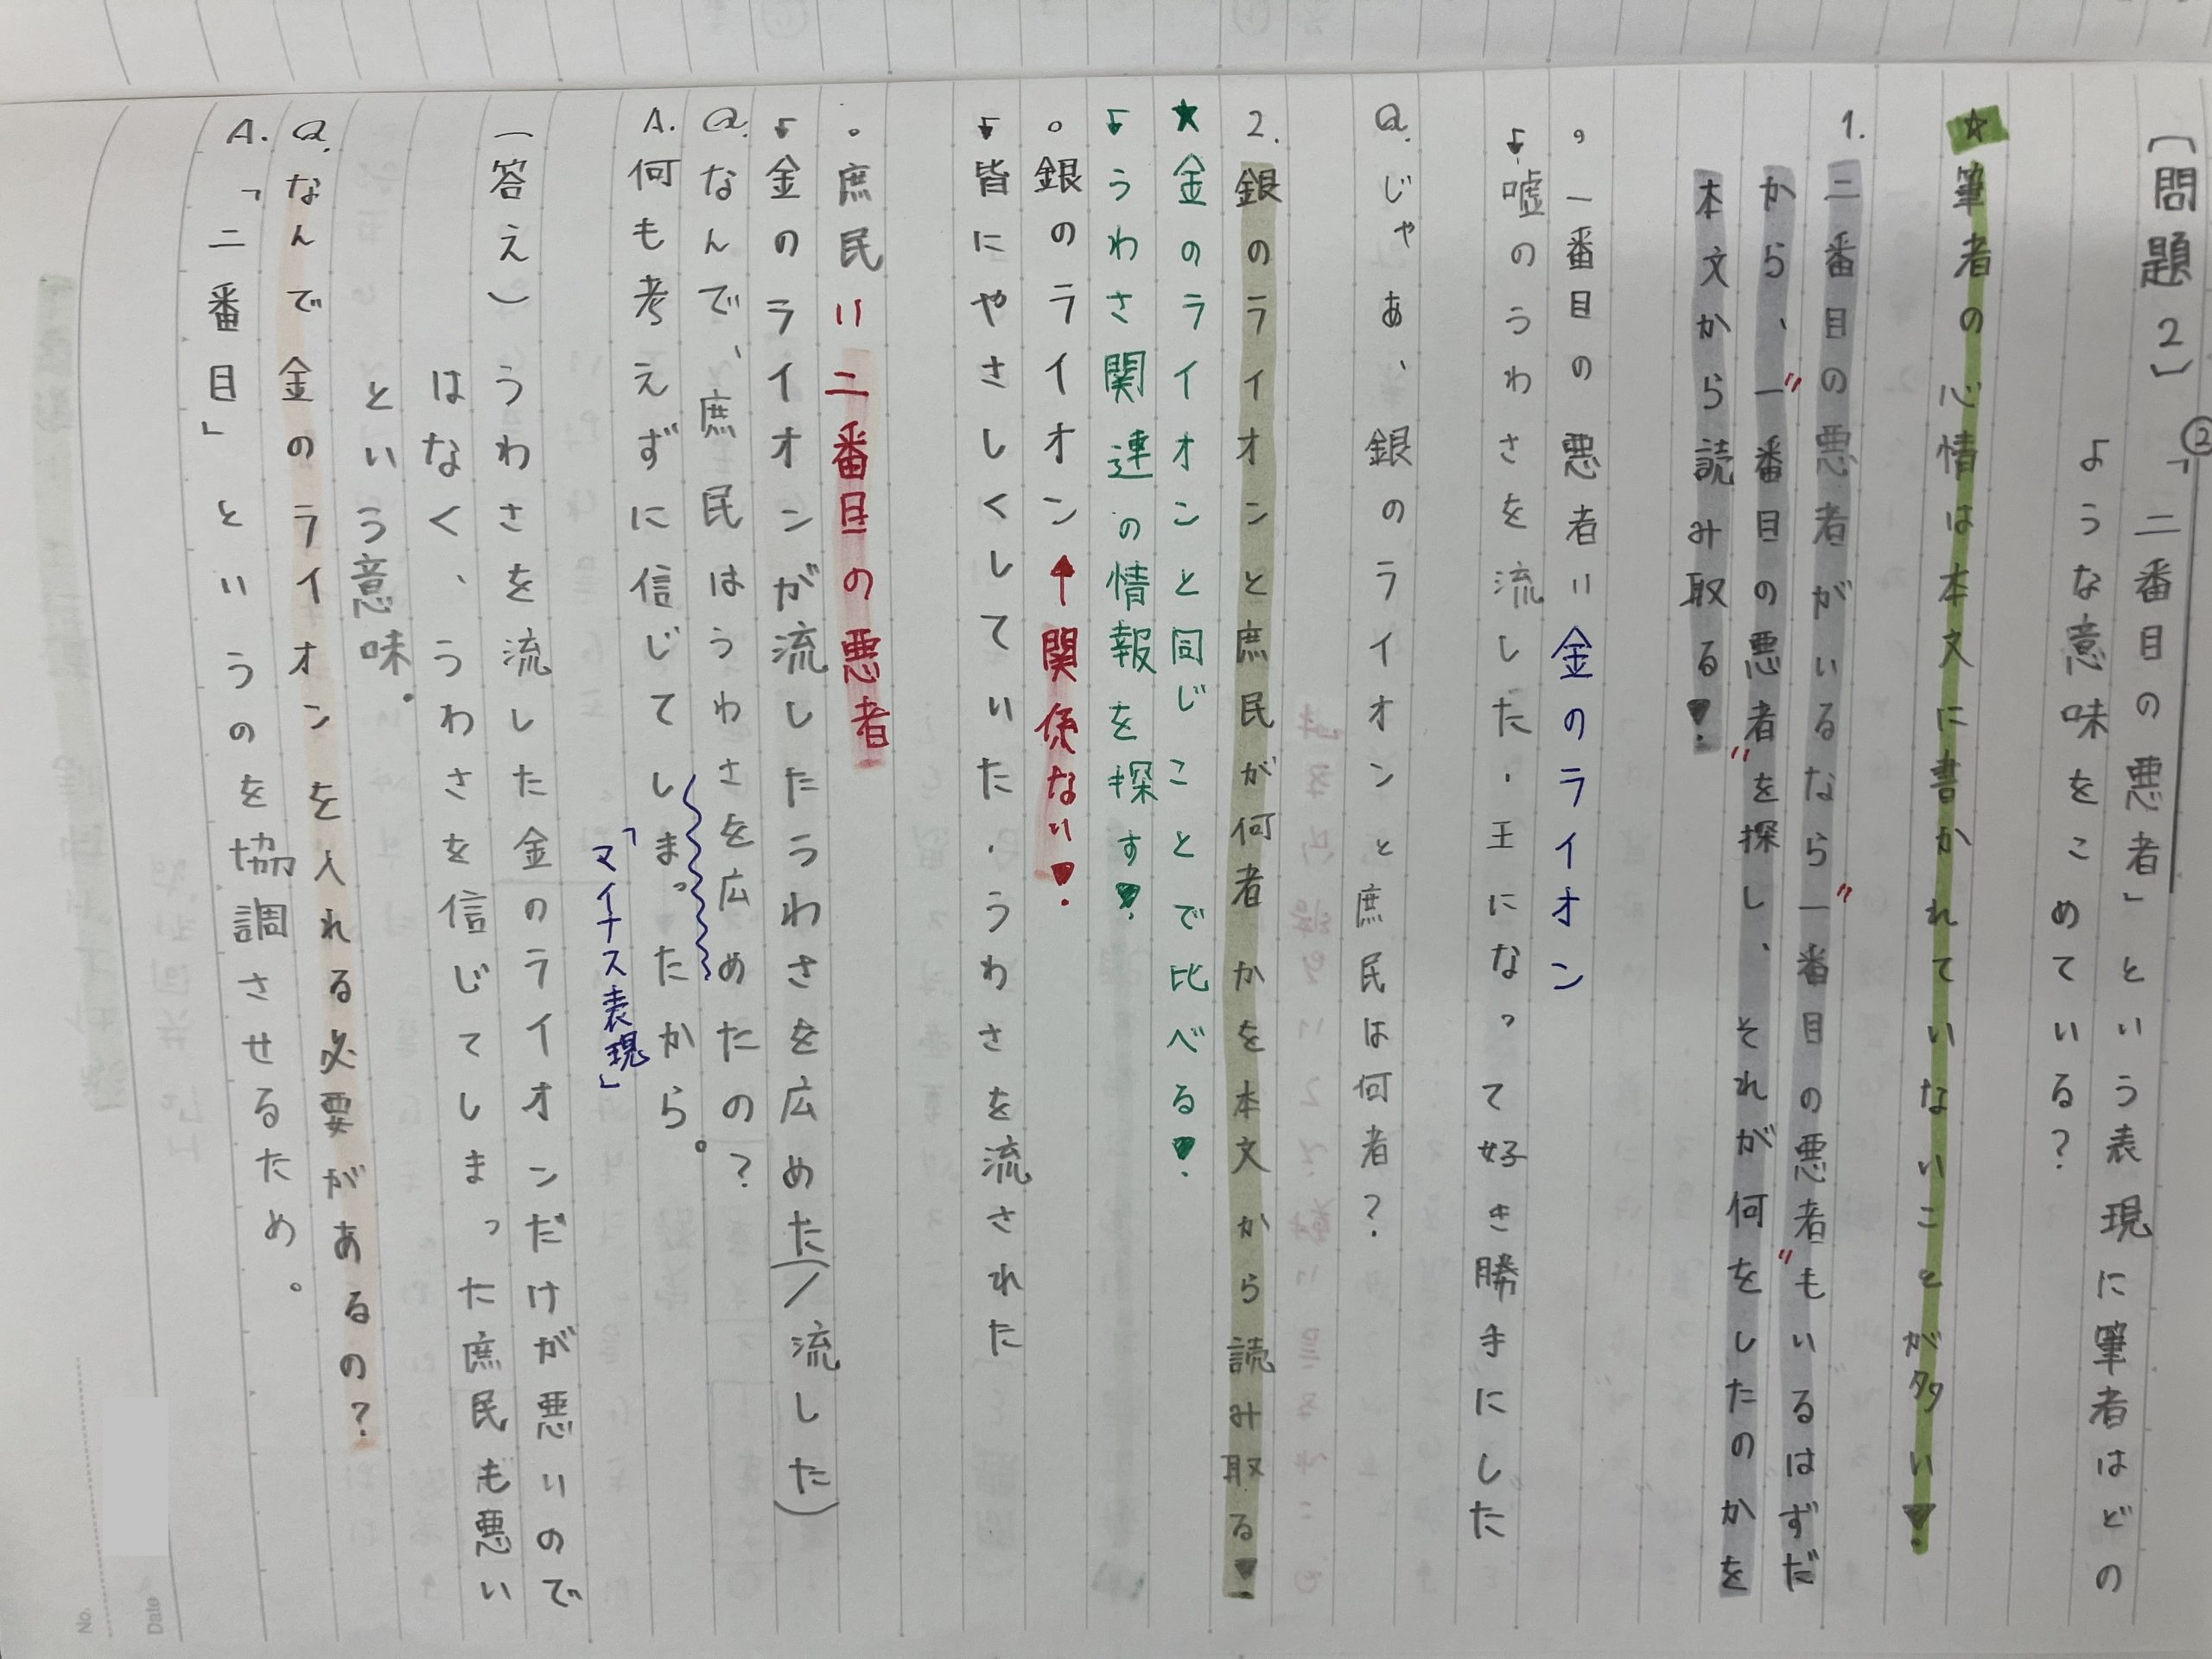 〔問題2〕②「二番目の悪者」という表現に筆者はどの
ような意味をこめている?
☆筆者の心情は本文に書かれていないことが多い!
1. 二番目の悪者がいるなら"一番目の悪者"もいるはずだ
から、"一番目の悪者"を探し、それが何をしたのかを
本文から読み取る!
。一番目の悪者=金のライオン
↓嘘のうわさを流した.王になって好き勝手にした
Q.じゃあ、銀のライオンと庶民は何者?
2. 銀のライオンと庶民が何者かを本文から読み取る!
★金のライオンと同じことで比べる!
↓うわさ関連の情報を探す!
。銀のライオン↑関係ない!
↓皆にやさしくしていた.うわさを流された
。庶民=二番目の悪者
↓金のライオンが流したうわさを広めた(/流した)
Q.なんで、庶民はうわさを広めたの?
A.何も考えずに信じてしまったから。
「マイナス表現」
(答え)うわさを流した金のライオンだけが悪いので
はなく、うわさを信じてしまった庶民も悪い
という意味.
Q.なんで金のライオンを入れる必要があるの?
A.「二番目」というのを協調させるため。
No.
Date